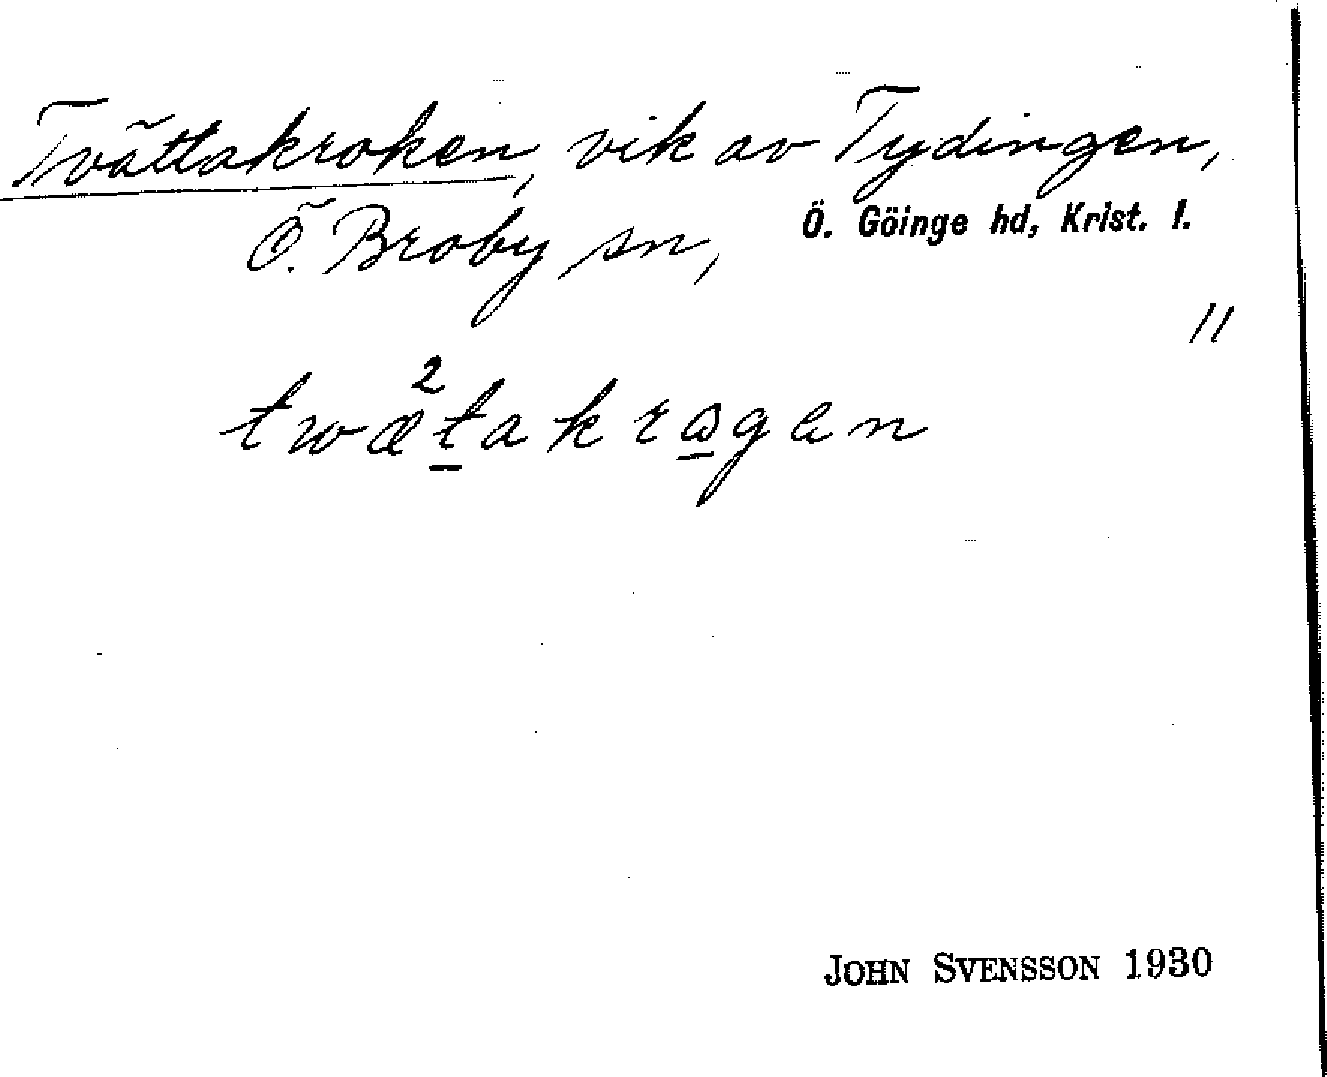 Tvättakroken, vik av Tydingen,
Ö. Broby sn, Ö. Göinge hd, Krist. l.
"
2
twætakrωgen
JOHN SVENSSON 1930